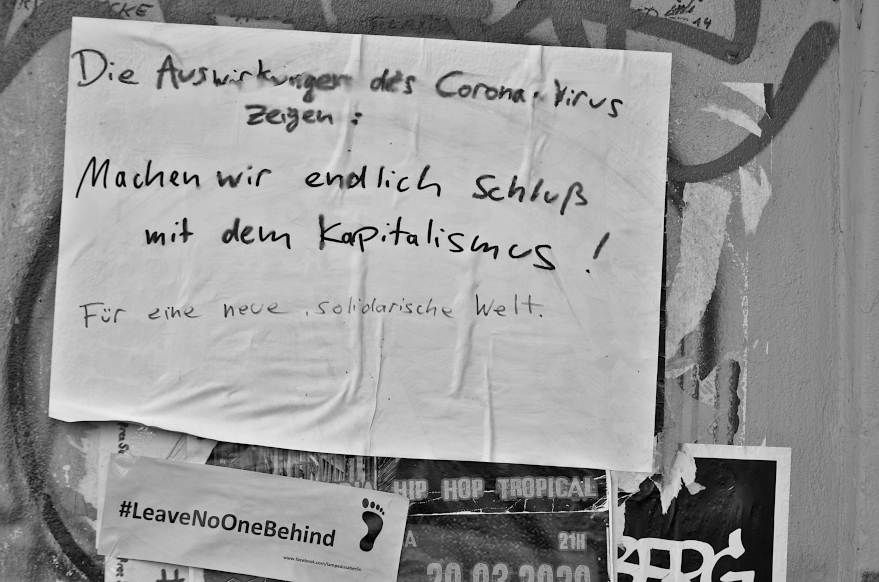 Die Auswirkungen des Corona-Virus
zeigen:
Machen wir endlich Schluß
mit dem Kapitalismus!
Für eine neue, solidarische Welt.
#LeaveNoOneBehind
HIP HOP TROPICAL
21H
20.03.2020
BERG